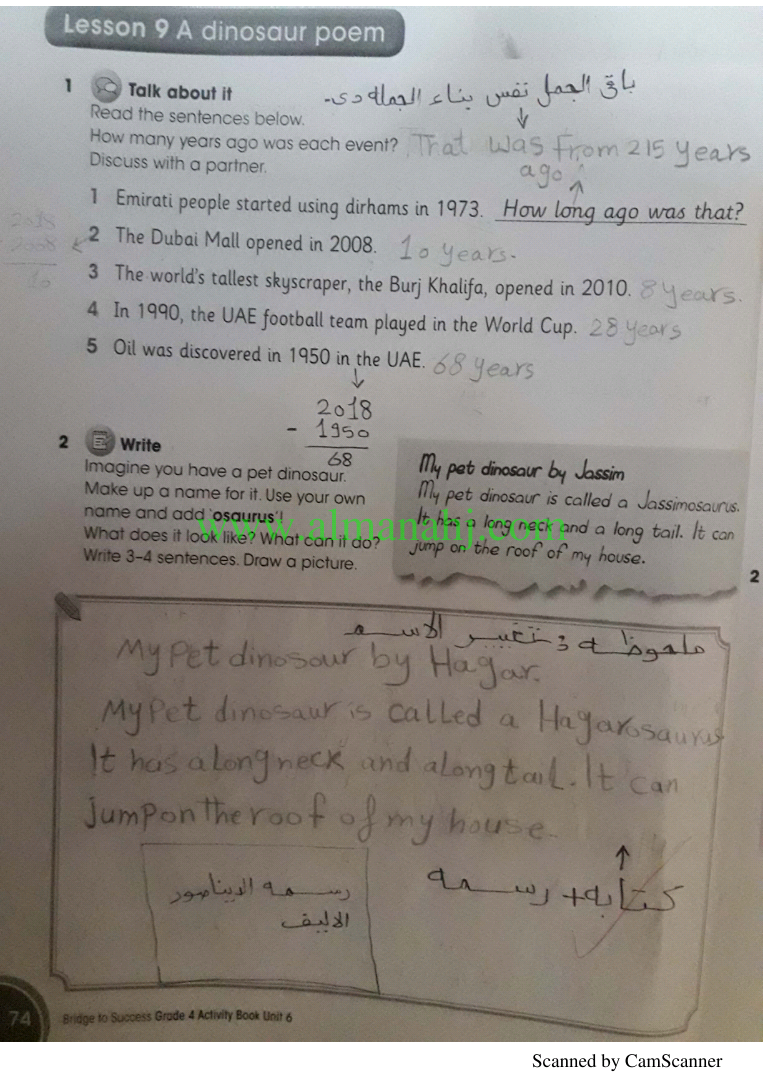 Lesson 9 A dinosaur poem
1 Talk about it
باقى الجمل نفس بناء الجملة دى-
Read the sentences below.
How many years ago was each event? That was from 215 years
ago
Discuss with a partner.
1 Emirati people started using dirhams in 1973. How long ago was that?
2018
2008
10
2 The Dubai Mall opened in 2008. 10 years.
3 The world's tallest skyscraper, the Burj Khalifa, opened in 2010. 8 years.
4 In 1990, the UAE football team played in the World Cup. 28 years
5 Oil was discovered in 1950 in the UAE. 68 years
2018
- 1950
68
2 Write
Imagine you have a pet dinosaur.
Make up a name for it. Use your own
name and add 'osaurus'!
What does it look like? What can it do?
Write 3–4 sentences. Draw a picture.
My pet dinosaur by Jassim
My pet dinosaur is called a Jassimosaurus.
It has a long neck and a long tail. It can
jump on the roof of my house.
www.almanahj.com
2
ملحوظه : تتغير الاسم
My Pet dinosour by Hagar.
My Pet dinosaur is called a Hagarosaurus
It has a long neck and a long tail. It can
Jump on the roof of my house.
رسمه الديناصور
الاليف
كتابه + رسمه
74
Bridge to Success Grade 4 Activity Book Unit 6
Scanned by CamScanner